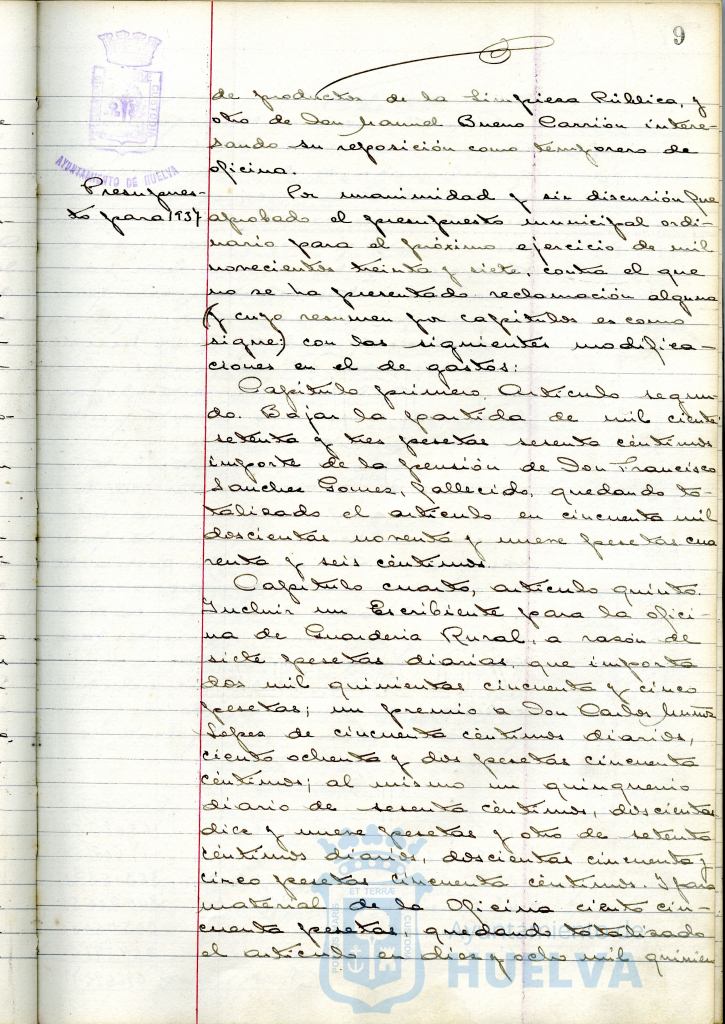 9
AYUNTAMIENTO DE HUELVA
de productos de la Limpieza Pública, y
otro de Don Manuel Bueno Carrión intere-
sando su reposición como temporero de
oficina.
Presupues-
to para 1937
Por unanimidad y sin discusión fue
aprobado el presupuesto municipal ordi-
nario para el próximo ejercicio de mil
novecientos treinta y siete, contra el que
no se ha presentado reclamación alguna
(y cuyo resumen por capítulos es como
sigue:) con las siguientes modifica-
ciones en el de gastos:
Capítulo primero. Artículo segun-
do. Bajar la partida de mil ciento
setenta y tres pesetas sesenta céntimos
importe de la pensión de Don Francisco
Sanchez Gomez, fallecido, quedando to-
talizado el artículo en cincuenta mil
doscientas noventa y nueve pesetas cua
renta y seis céntimos.
Capítulo cuarto, artículo quinto.
Incluir un Escribiente para la ofici-
na de Guardería Rural, a razón de
siete pesetas diarias, que importa
dos mil quinientas cincuenta y cinco
pesetas; un premio a Don Carlos Muñoz
López de cincuenta céntimos diarios,
ciento ochenta y dos pesetas cincuenta
céntimos; al mismo un quinquenio
diario de sesenta céntimos, doscientas
diez y nueve pesetas y otro de setenta
céntimos diarios, doscientas cincuenta y
cinco pesetas cincuenta céntimos. Y para
material de la Oficina ciento cin-
cuenta pesetas, quedando totalizado
el artículo en diez y ocho mil quinien
Ayuntamiento de
HUELVA